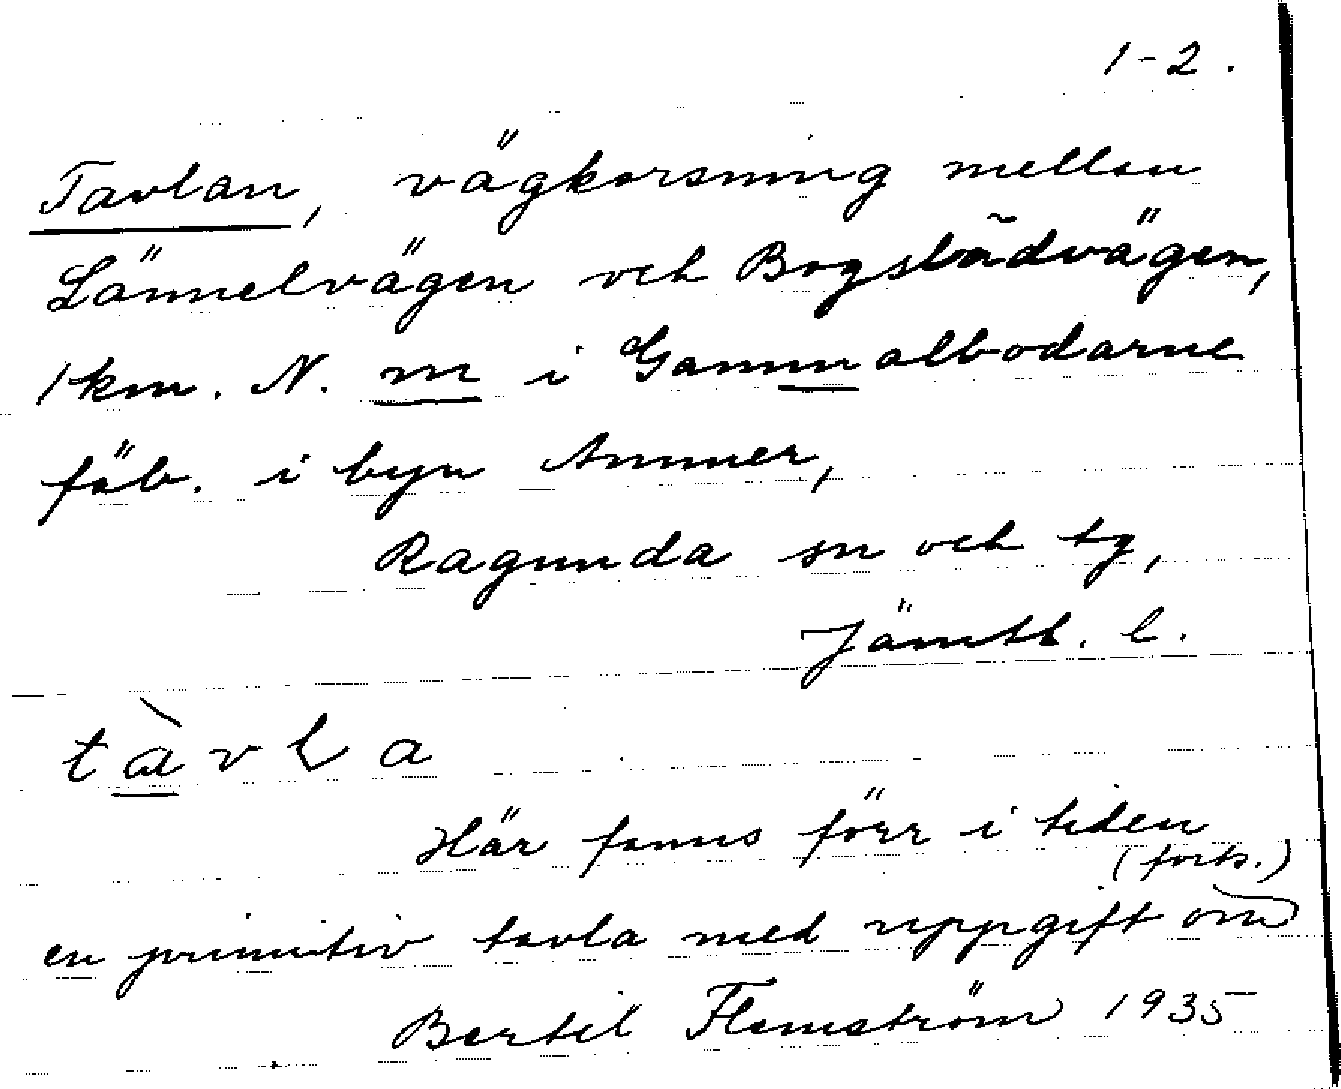 1-2.
Tavlan, vägkorsning mellan
Lännelvägen och Bogstådvägen,
1 km. N. m i Gammalbodarne
fäb. i byn Ammer,
Ragunda sn och tg,
Jämtl. l.
tàvla
Här fanns förr i tiden
(forts.)
en primitiv tavla med uppgift om
Bertil Flemström 1935